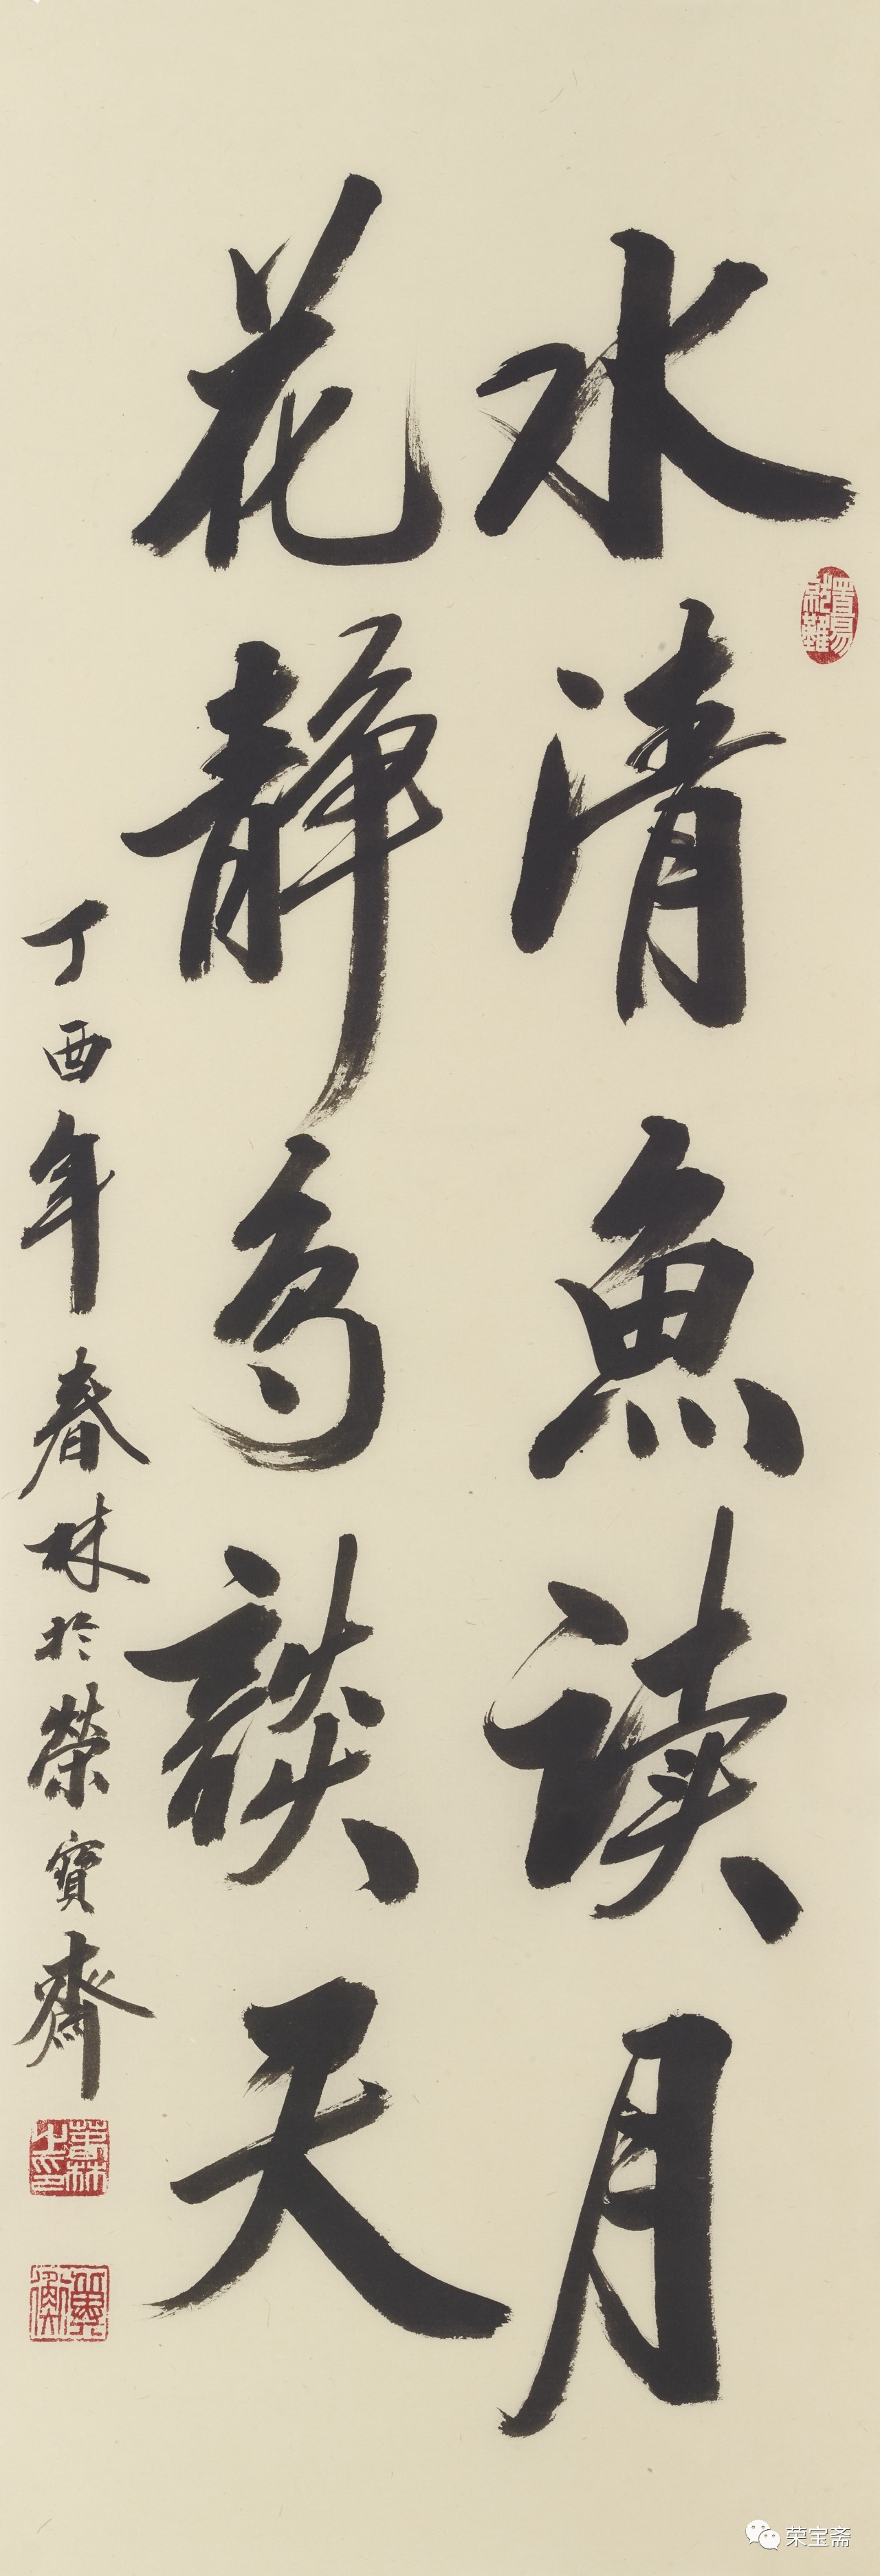 水清魚读月
花静鸟談天
丁酉年春林於榮寶齋
荣宝斋